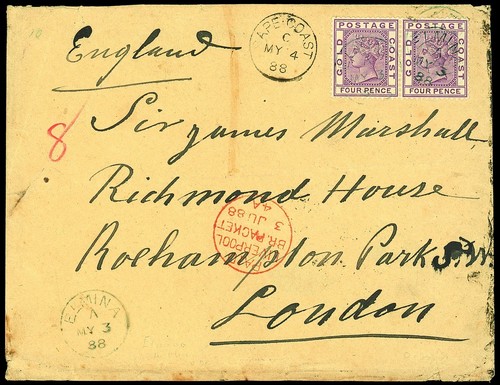 CAPE COAST
C
MY 4
88
POSTAGE
GOLD COAST
FOUR PENCE
POSTAGE
GOLD COAST
FOUR PENCE
ELMINA
MY 3
88
England
8
Sir James Marshall
Richmond House
Roehampton Park S.W
London
LIVERPOOL
BR. PACKET
3 JU 88
4A
ELMINA
A
MY 3
88